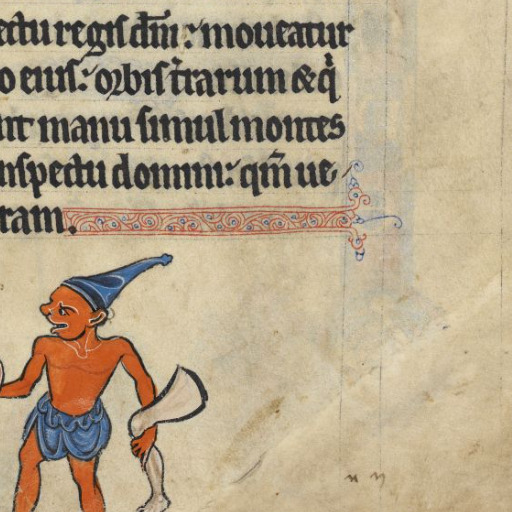 ectu regis dñi : moueatur
o eius : orbis t̄rarum & q̄
nt manu simul montes
nspectu domini : qm̄ ue
ram.